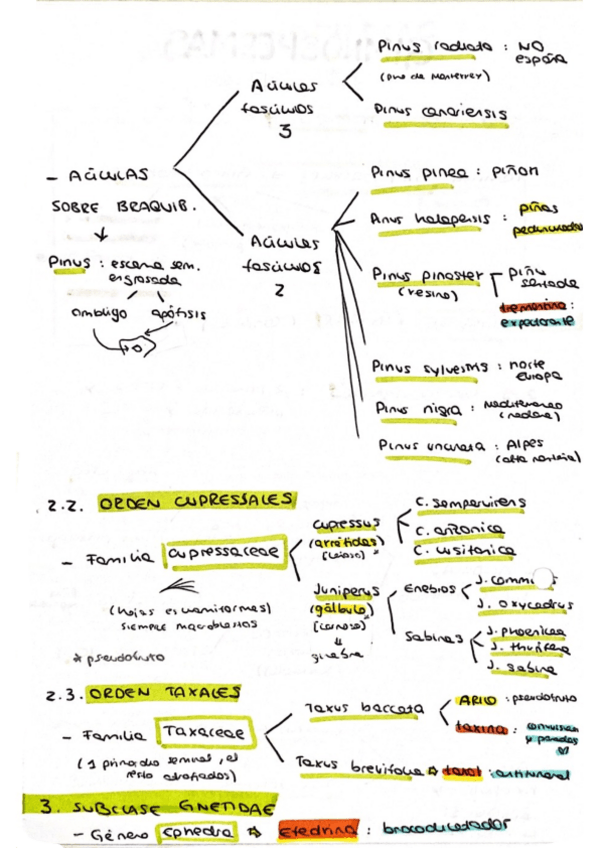 Pinus radiata : NO
españa
(pino de Monterrey)
Acículas
fascículos
3
Pinus canariensis
- ACÍCULAS
SOBRE BRAQUIB.
Pinus : escama sem.
engrosada
ombligo apófisis
Acículas
fascículos
2
Pinus pinea : piñon
Pinus halapensis : piñas
pedunculadas
Pinus pinaster piña
(resina) sentada
trementina :
expectorante
Pinus sylvestris : norte
Europa
Pinus nigra : Mediterraneo
(madera)
Pinus uncinata : Alpes
(alta montaña)
2.2. ORDEN CUPRESSALES
- Familia cupressaceae
(hojas escuamiformes)
siempre macroblastos
* pseudofruto
Cupressus
(arcéstidas)
(leñoso) *
C. sempervirens
C. arizonica
C. lusitanica
Juniperus
(gálbulo)
(carnoso) *
ginebra
Enebros
J. communis
J. oxycedrus
Sabinas
J. phoenicea
J. thurifera
J. sabina
2.3. ORDEN TAXALES
- Familia Taxaceae
(1 primordio seminal, el
resto atrofiados)
Taxus baccata
ARILO : pseudofruto
taxina : convulsion
y paradas
♡
Taxus brevifolia ⇨ taxol : antitumoral
3. SUBCLASE GNETIDAE
- Género ephedra ⇨ Efedrina : broncodilatador